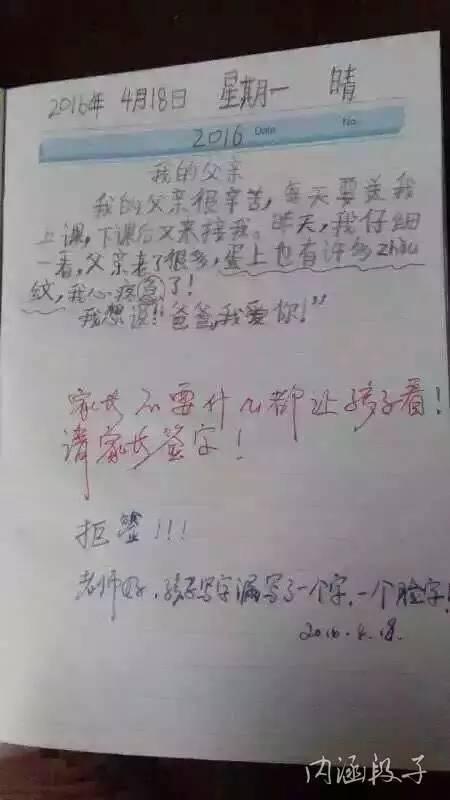 2016年 4月18日 星期一 晴
2016 Date No.
我的父亲
我的父亲很辛苦，每天要送我
上课，下课后又来接我。昨天，我仔细
一看，父亲老了很多，蛋上也有许多zhòu
纹，我心疼急了！
我想说："爸爸，我爱你！"
家长不要什么都让孩子看！
请家长签字！
拒签！！！
老师好，孩子写字漏写了一个字，一个脸字！
2016.4.18.
内涵段子